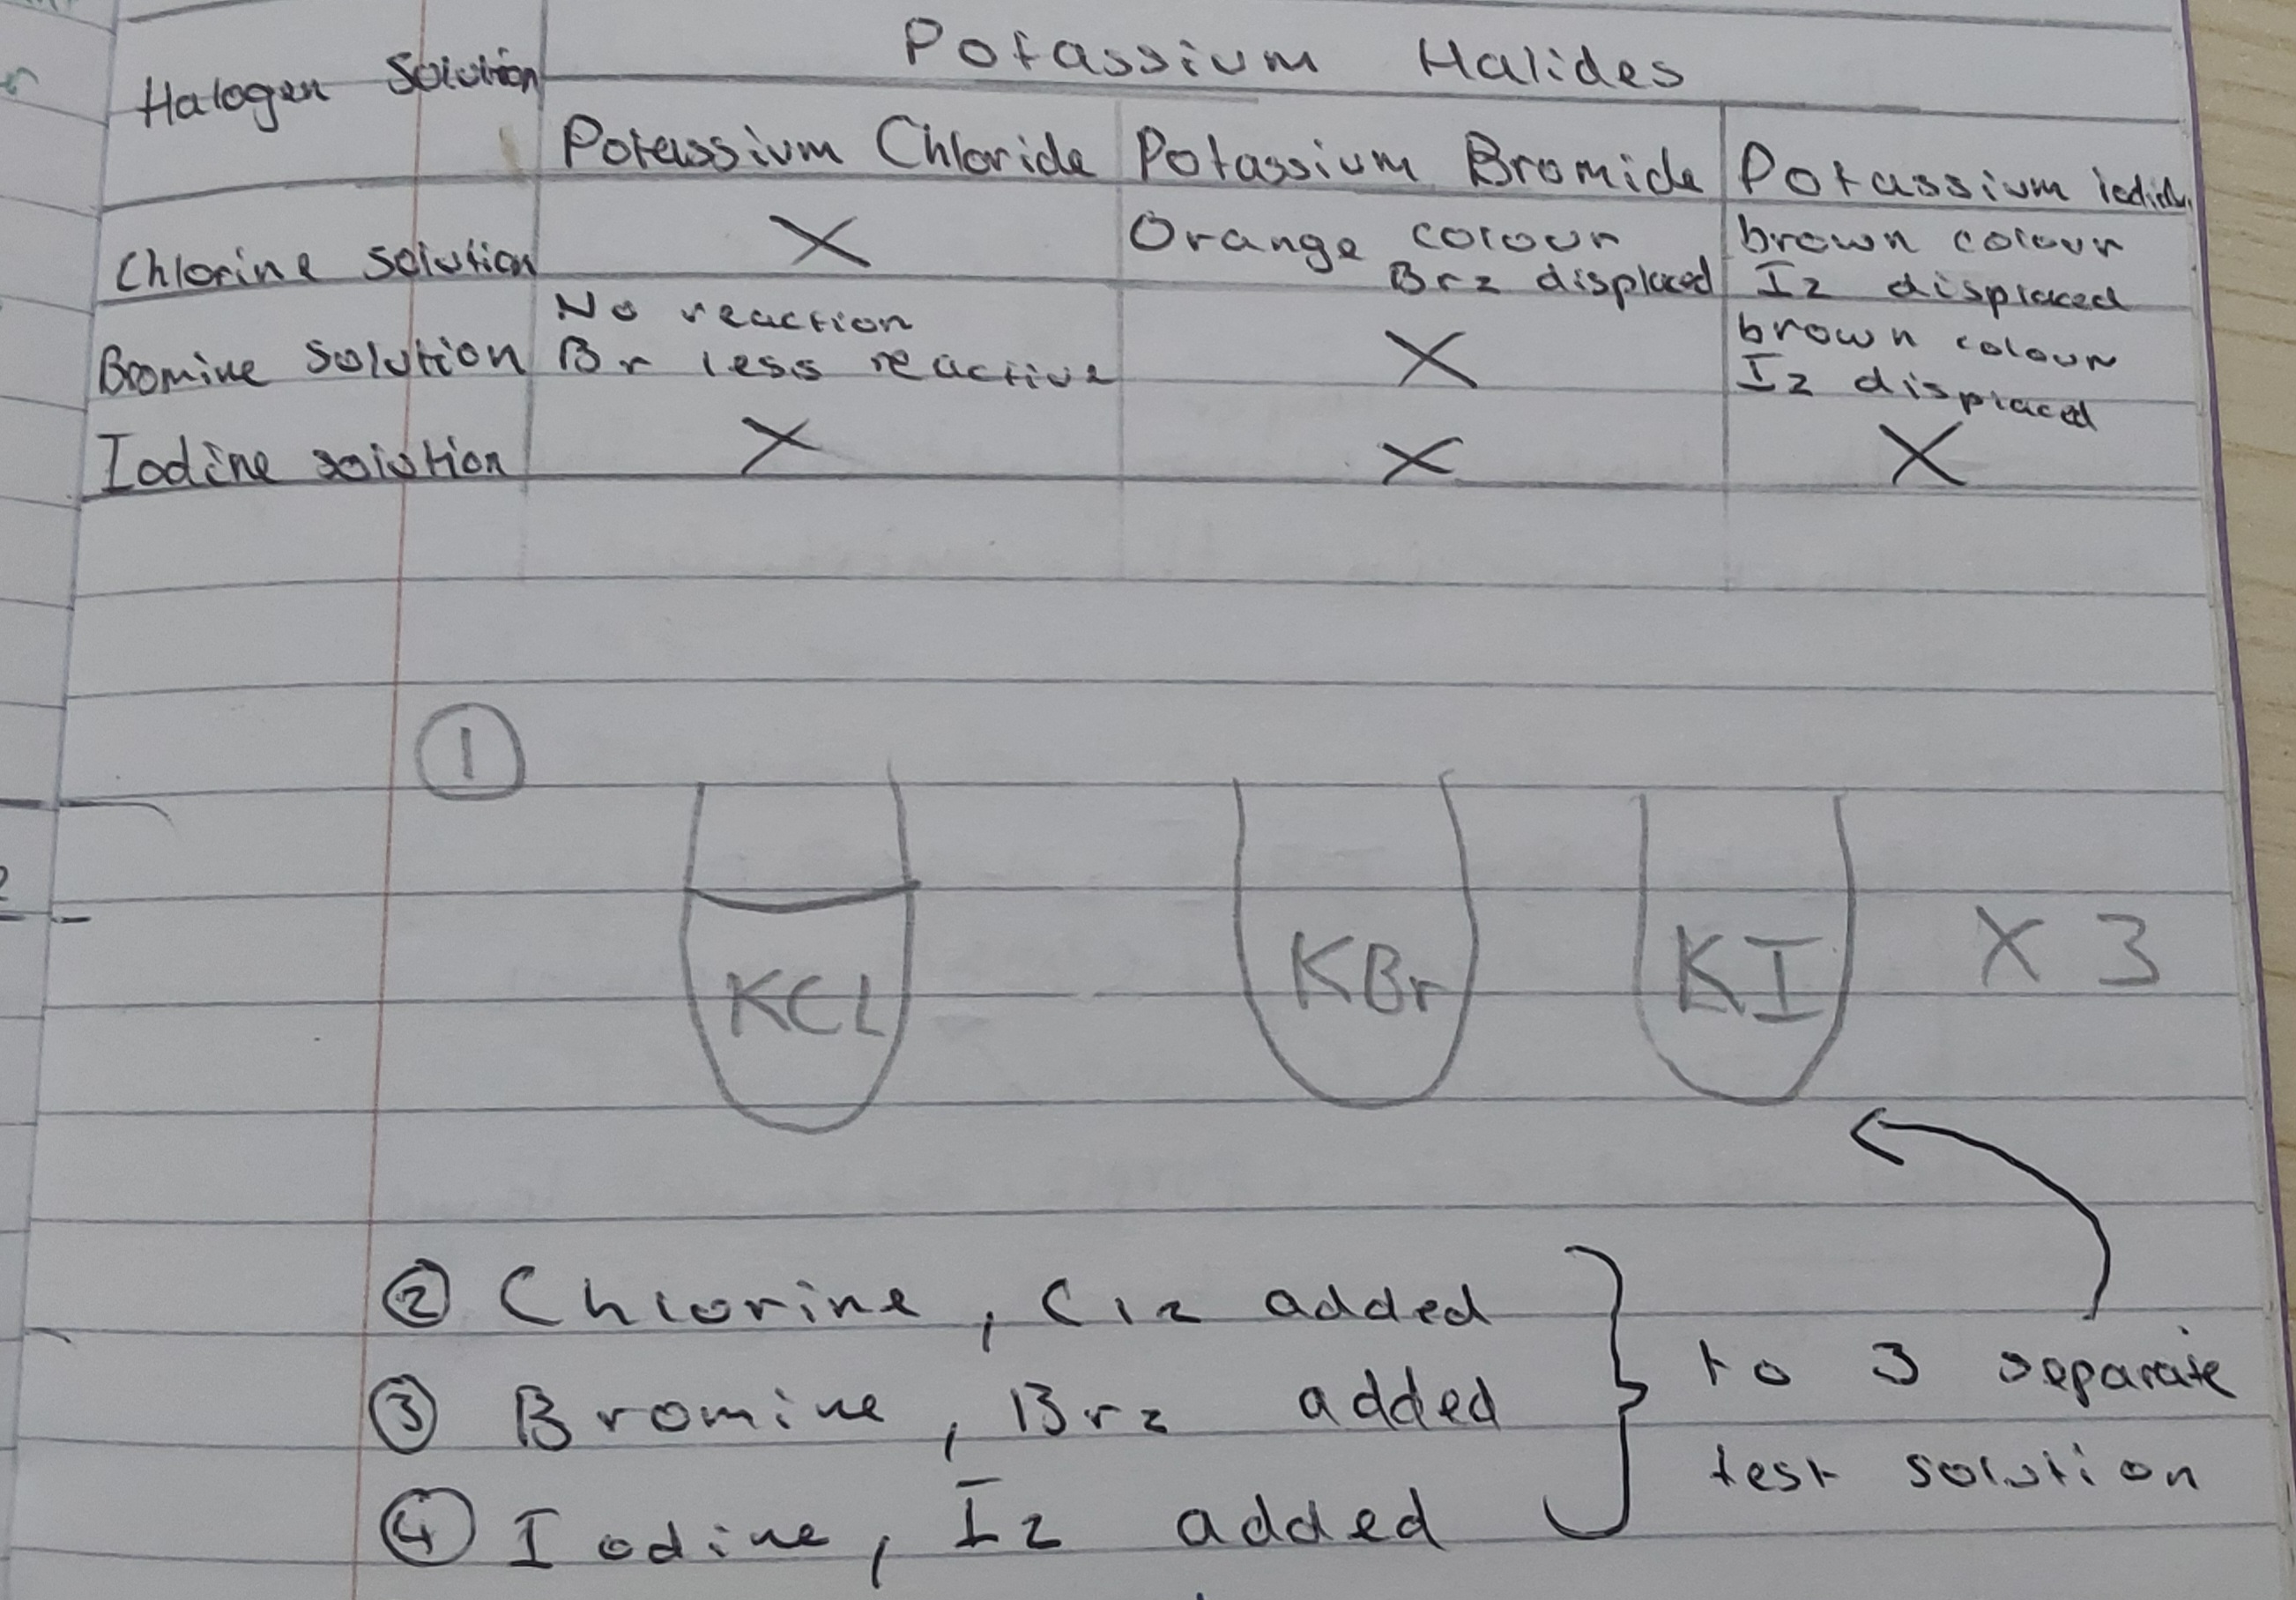 Potassium Halides
Halogen Solution
Potassium Chloride Potassium Bromide Potassium iodide
Chlorine solution X Orange colour Br2 displaced brown colour I2 displaced
Bromine solution No reaction Br less reactive X brown colour I2 displaced
Iodine solution X X X
1
KCl KBr KI X 3
2 Chlorine, Cl2 added
3 Bromine, Br2 added
4 Iodine, I2 added
to 3 separate
test solution